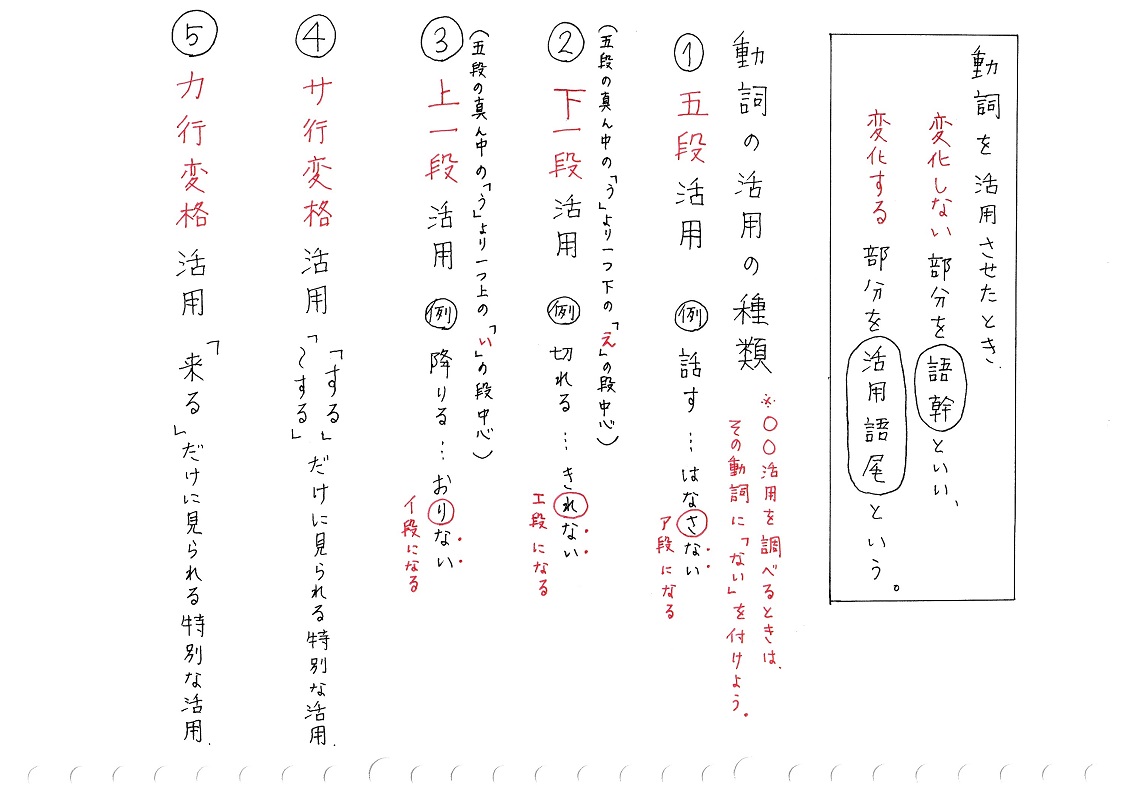 動詞を活用させたとき、
変化しない部分を語幹といい、
変化する部分を活用語尾という。
動詞の活用の種類
※〇〇活用を調べるときは、
その動詞に「ない」を付けよう。
①五段活用 例 話す…はなさない
ア段になる
(五段の真ん中の「う」より一つ下の「え」の段中心)
②下一段活用 例 切れる…きれない
エ段になる
(五段の真ん中の「う」より一つ上の「い」の段中心)
③上一段活用 例 降りる…おりない
イ段になる
④サ行変格活用 「する」「~する」だけに見られる特別な活用.
⑤カ行変格活用 「来る」だけに見られる特別な活用.